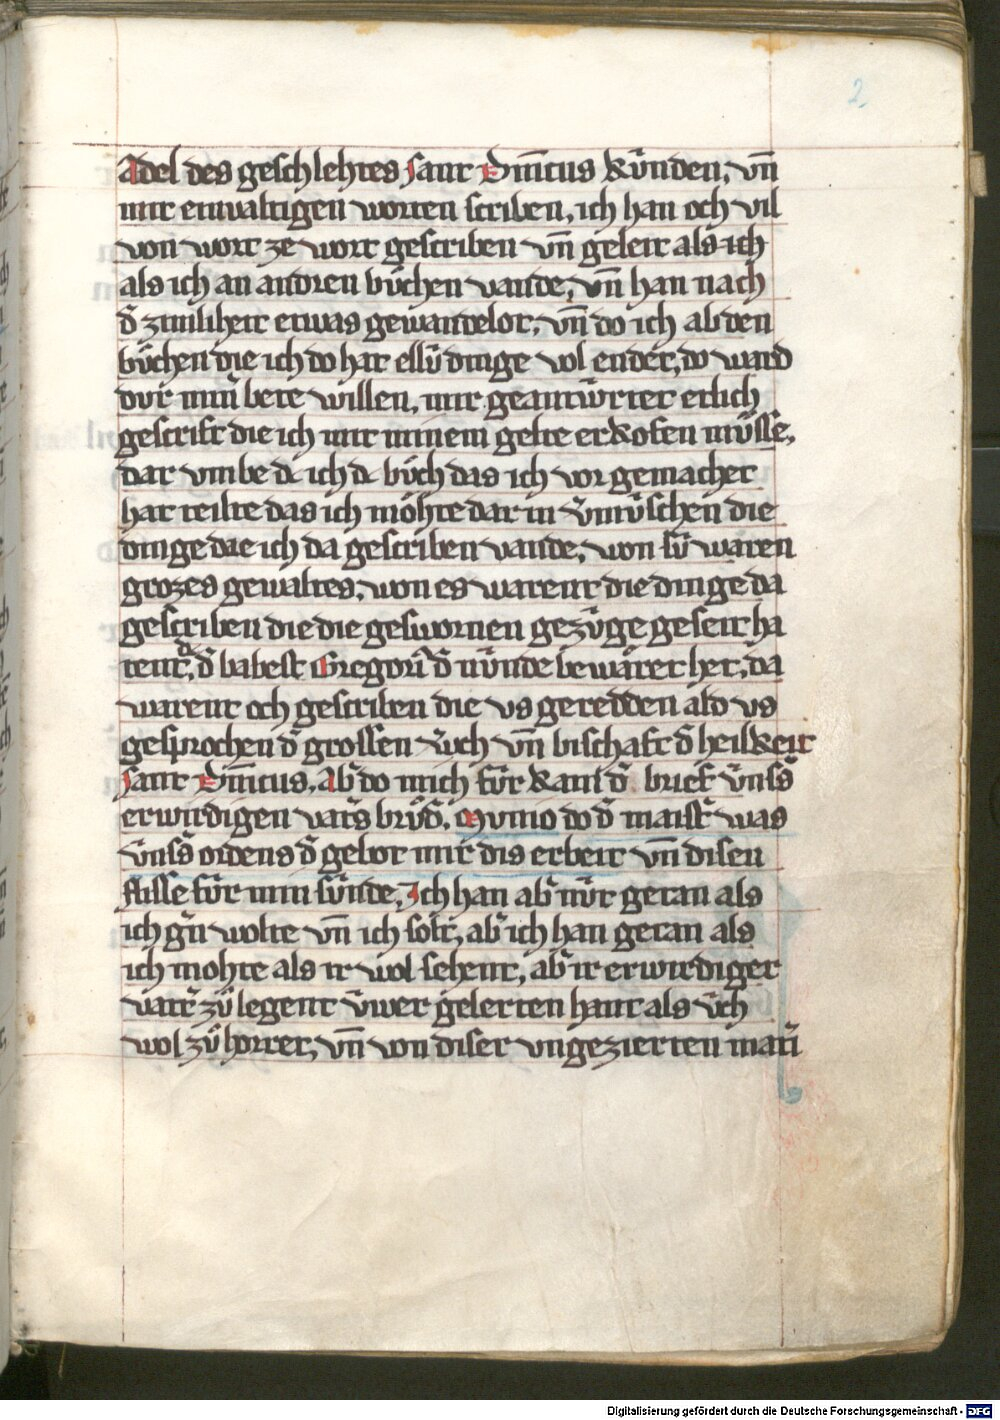 2
Adel des geschlehtes sant Dm̄icus kúnden, vn̄
mit einvaltigen worten scriben, ich han och vil
von wort ze wort gescriben vn̄ geleit als ich
als ich an andren bůchen vande, vn̄ han nach
d̄ zimlicheit etwas gewandelot, vn̄ do ich ab den
bůchen die ich do hat ellú dinge vol endet, do ward
dur min bete willen, mir geantwúrtet etlich
gescrift die ich mit minem gelte erkofen můsse,
dar vmbe dc ich dc bůch das ich vor gemachet
hat teilte das ich mŏhte dar in v̄nrúschen die
dinge die ich da gescriben vande, won sú waren
grozes gewaltes, won es warent die dinge da
gescriben die die geswornen gezúge geseit ha
tent, d̄ babest Gregori d̄ núnde bewäret het, da
warent och gescriben die vs geredden ald vs
gesprochen d̄ grossen zuch vn̄ bischaft d̄ heilkeit
sant Dm̄icus, Ab̄ do mich fúr kam d̄ brief vnss̄
erwirdigen vatr̄s brůd̄, Munio do d̄ maistr̄ was
vnss̄ ordens d̄ gebot mir dis erbeit vn̄ disen
flisse fúr min súnde, Ich han ab̄ nút getan als
ich gn̄ wolte vn̄ ich solt, ab̄ ich han getan als
ich mohte als ir wol sehent, ab̄ ir erwirdiger
vatr̄ zů legent v́wer gelerten hant als v́ch
wol zů horret, vn̄ von diser vngezierten matī
Digitalisierung gefördert durch die Deutsche Forschungsgemeinschaft - DFG